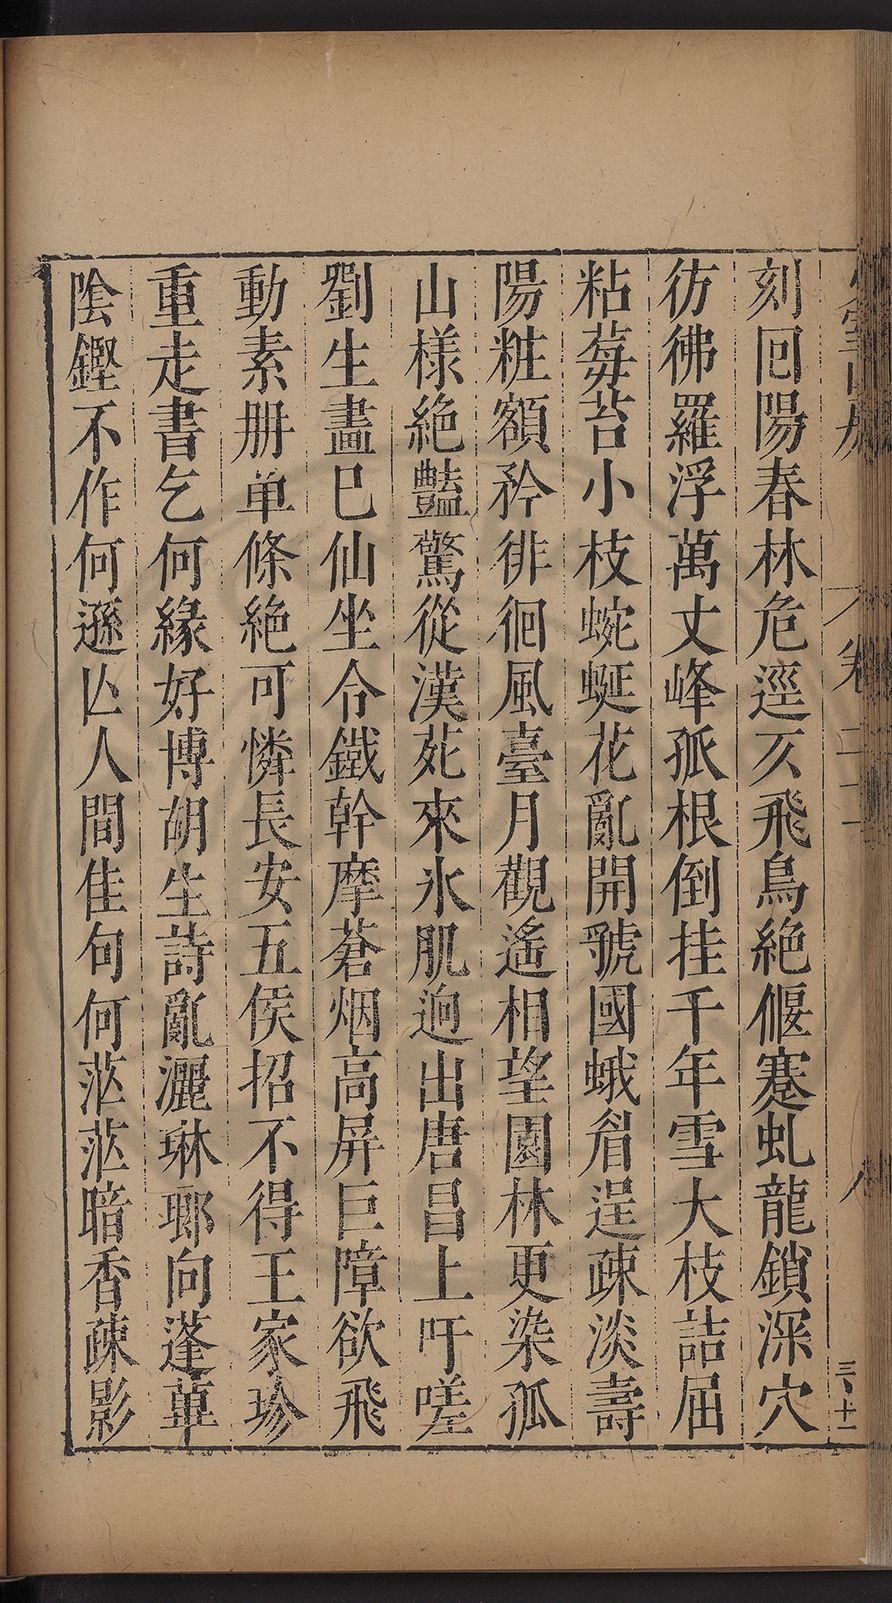 刻回陽春林危逕仄飛鳥絶偃蹇虬龍鎖深穴
彷彿羅浮萬丈峰孤根倒挂千年雪大枝詰屈
粘莓苔小枝蜿蜒花亂開虢國蛾眉逞疎淡壽
陽粧額矜徘徊風臺月觀遙相望園林更染孤
山樣絶豔驚從漢苑來氷肌逈出唐昌上吁嗟
劉生畵巳仙坐令鐵幹摩蒼烟高屏巨障欲飛
動素册单條絶可憐長安五侯招不得王家珍
重走書乞何緣好博胡生詩亂灑琳瑯向蓬蓽
陰鏗不作何遜亾人間佳句何茫茫暗香疎影
卷二十
三、十一